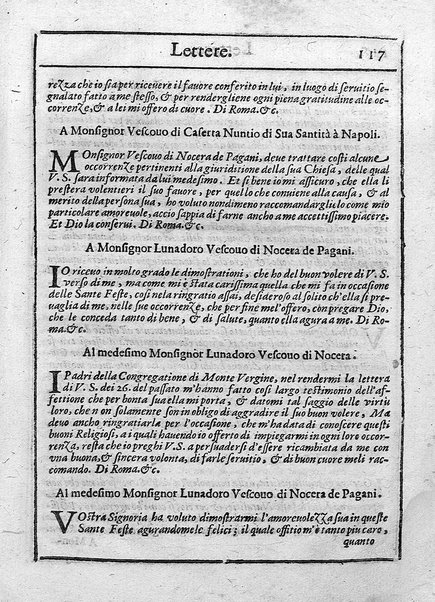 Lettere. 117
rezza che io sia per riceuere il fauore conferito in lui, in luogo di seruitio se-
gnalato fatto à me stesso, & per rendergliene ogni piena gratitudine alle oc-
correnze, & a lei mi offero di cuore. Di Roma.&c.
A Monsignor Vescouo di Caserta Nuntio di Sua Santità à Napoli.
MOnsignor Vescouo di Nocera de Pagani, deue trattare costì alcune
occorrenze pertinenti alla giuriditione della sua Chiesa, delle qual
V.S. sarà informata da lui medesimo. Et si bene io mi assicuro, che ella li
presterà volentieri il suo fauore, per quello che conuiene alla causa, & al
merito della persona sua, ho voluto nondimeno raccomandarglielo come mio
particolare amoreuole, acciò sappia di farne anche à me accettissimo piacere.
Et Dio la conserui. Di Roma.&c.
A Monsignor Lunadoro Vescouo di Nocera de Pagani.
IO riceuo in molto grado le dimostrationi, che ho del buon volere di V.S.
verso di me, ma come mi è stata carissima quella che mi fa in occasione
delle Sante Feste, così nela ringratio assai, desideroso al solito ch'ella si pre-
uaglia di me, nelle sue occorrenze, che per fine mel'offero, con pregare Dio,
che le conceda tanto di bene, & di salute, quanto ella agura a me. Di Ro-
ma.&c.
Al medesimo Monsignor Lunadoro Vescouo di Nocera.
I Padri della Congregatione di Monte Vergine, nel rendermi la lettera
di V.S. dei 26. del passato m'hanno fatto così largo testimonio dell'af-
fettione che per bontà sua ella mi porta, & datomi tal saggio delle virtù
loro, che non solamente son in obligo di aggradire il suo buon volere, Ma
deuo anche ringratiarla per l'occasione, che m'ha data di conoscere questi
buoni Religiosi, a i quali hauendo io offerto di impiegarmi in ogni loro occor-
renza, resta che io preghi V.S. a persuadersi d'essere ricambiata da me con
vna buona, & sincera volontà, di farle seruitio, & di buon cuore me li rac-
comando. Di Roma.&c.
Al medesimo Monsignor Lunadoro Vescouo di Nocera de Pagani.
VOstra Signoria ha voluto dimostrarmi l'amoreuolezza sua in queste
Sante Feste agurandomele felici; il quale offitio m'è tanto piu caro,
quanto